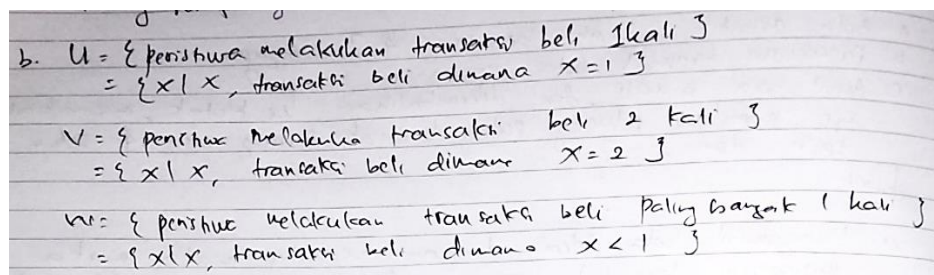 b. U = { peristiwa melakukan transaksi beli 1 kali }
= { x | x, transaksi beli dimana x = 1 }
V = { peristiwa melakukan transaksi beli 2 kali }
= { x | x, transaksi beli dimana x = 2 }
W = { peristiwa melakukan transaksi beli paling banyak 1 kali }
= { x | x, transaksi beli dimana x < 1 }